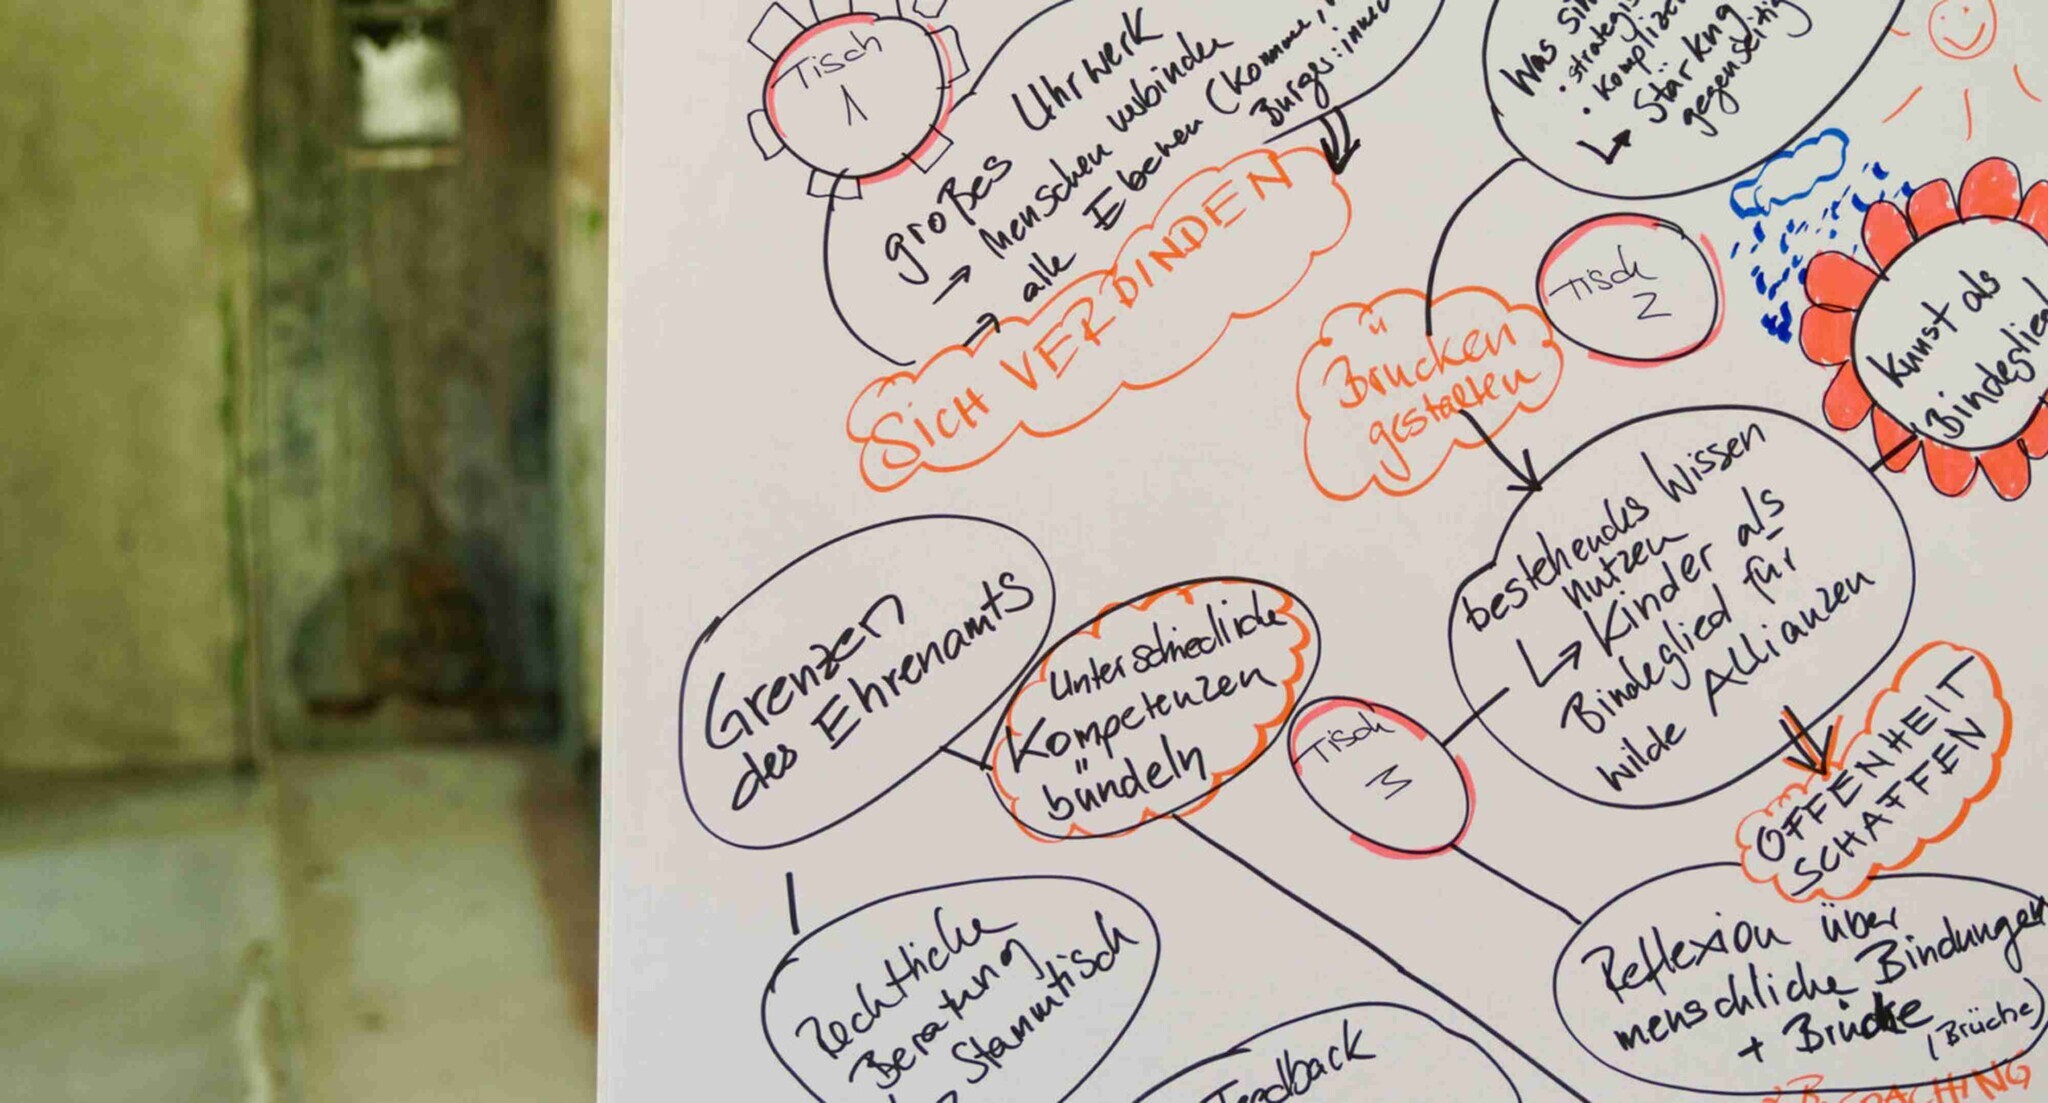 Tisch
1
großes Uhrwerk
→ Menschen verbinden
→ alle Ebenen (Kommune,
Bürger:innen
SICH VERBINDEN
Was
strategis
• Komplizen
↳ Stärkng
gegenseitig
Tisch
2
Brücken
gestalten
Kunst als
Bindeglied
bestehendes Wissen
nutzen
↳ Kinder als
Bindeglied für
wilde Allianzen
Grenzen
des Ehrenamts
Unterschiedliche
Kompetenzen
bündeln
Tisch
3
OFFENHEIT
SCHAFFEN
Reflexion über
menschliche Bindungen
+ Brücke
(Brüche)
Rechtliche
Beratung
Stammtisch
Feedback